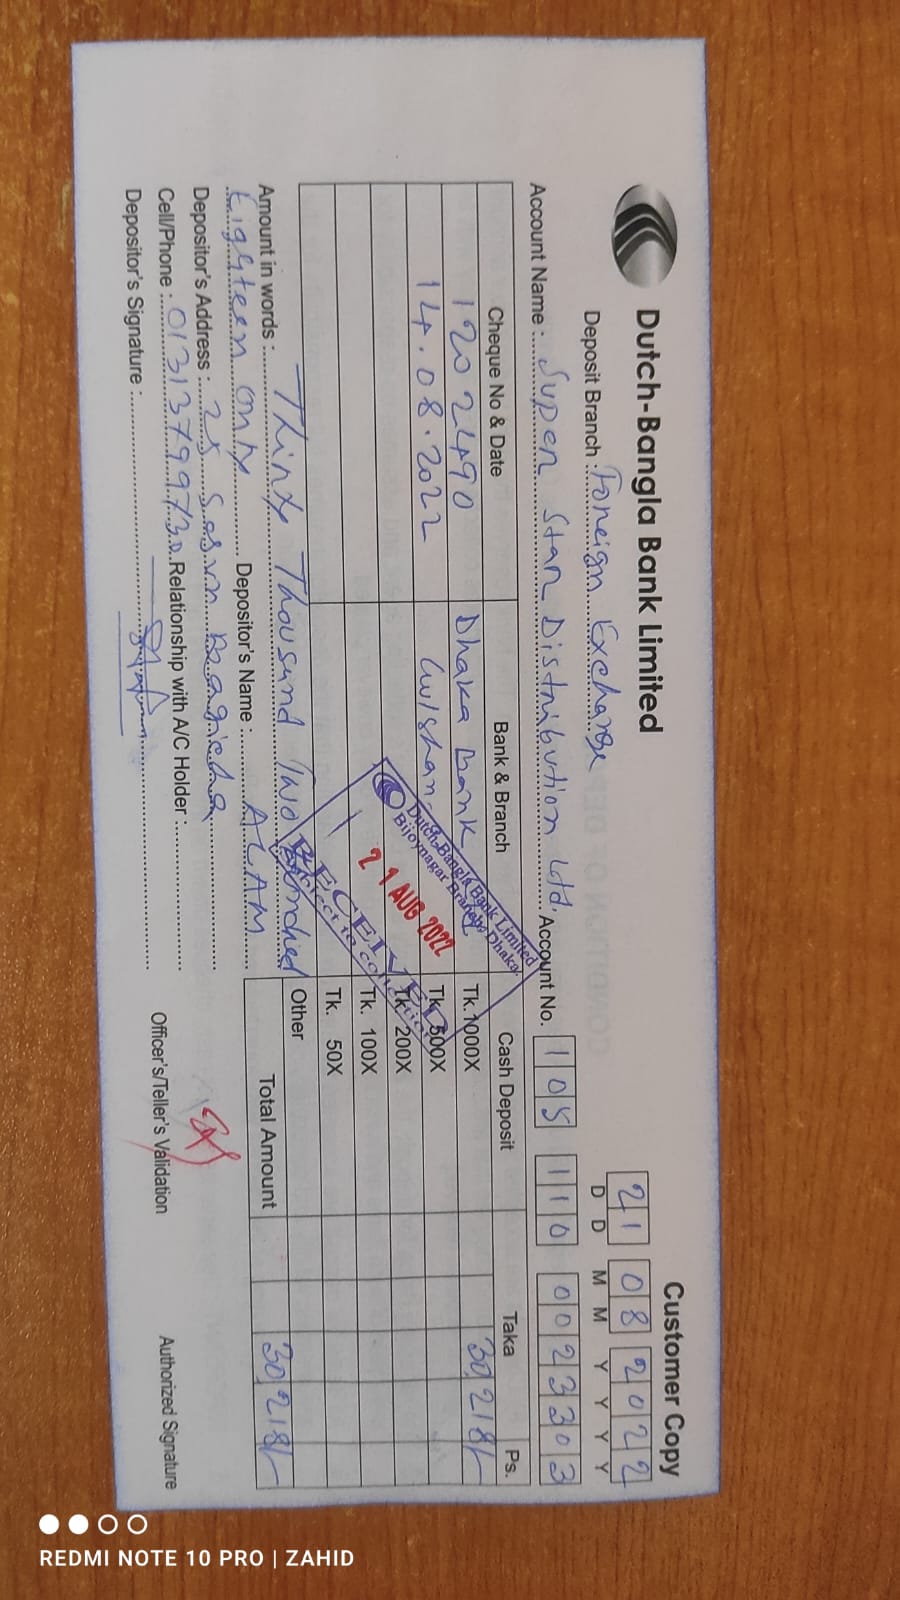 Customer Copy
Dutch-Bangla Bank Limited
21 08 2022
D D M M Y Y Y Y
Deposit Branch : Foreign Exchange
Account Name : Super Star Distribution Ltd. Account No. 105 110 0023303
Cheque No & Date Bank & Branch Cash Deposit Taka Ps.
1202490 Dhaka Bank Tk.1000X 30,218/-
14.08.2022 Gulshan- Tk. 500X
Tk. 200X
Tk. 100X
Tk. 50X
Other
Dutch-Bangla Bank Limited
Bijoynagar Branch, Dhaka.
21 AUG 2022
RECEIVED
Subject to collection
Amount in words : Thirty Thousand Two Hundred
Total Amount 30,218/-
Eighteen Only Depositor's Name : ALAM
Depositor's Address : 25 Bagicha
Cell/Phone : 01313799730 Relationship with A/C Holder :
Depositor's Signature :
Officer's/Teller's Validation
Authorized Signature
REDMI NOTE 10 PRO | ZAHID